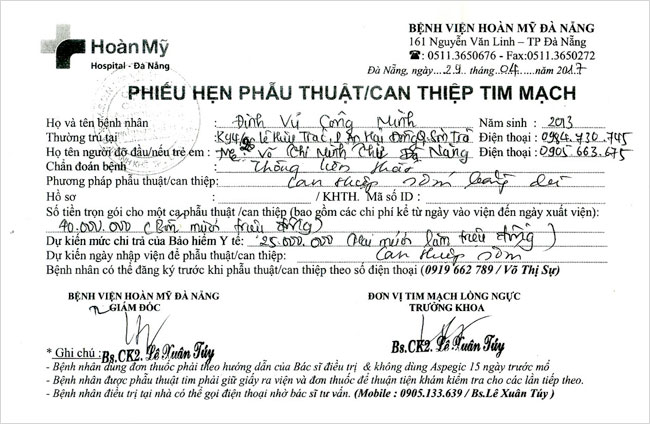 HoànMỹ
Hospital - Đà Nẵng
BỆNH VIỆN HOÀN MỸ ĐÀ NẴNG
161 Nguyễn Văn Linh – TP Đà Nẵng
☎: 0511.3650676 - Fax:0511.3650272
Đà Nẵng, ngày....29....tháng..04....năm 2017
PHIẾU HẸN PHẪU THUẬT/CAN THIỆP TIM MẠCH
Họ và tên bệnh nhân : Đinh Vũ Công Minh Năm sinh : 2013
Thường trú tại : Lê Hữu Trác, P An Hải Đông Q Sơn Trà Điện thoại : 0984.730.745
Họ tên người đỡ đầu/nếu trẻ em : Mẹ: Võ Thị Minh Đà Nẵng Điện thoại : 0905.663.675
Chẩn đoán bệnh : Thông liên thất
Phương pháp phẫu thuật/can thiệp: Can thiệp bằng dù
Hồ sơ : / KHTH. Mã số ID :
Số tiền trọn gói cho một ca phẫu thuật/can thiệp (bao gồm các chi phí kể từ ngày vào viện đến ngày xuất viện):
40.000.000 (Bốn mươi triệu đồng)
Dự kiến mức chi trả của Bảo hiểm Y tế: 25.000.000 (Hai mươi lăm triệu đồng)
Dự kiến ngày nhập viện để phẫu thuật/can thiệp: Can thiệp sớm
Bệnh nhân có thể đăng ký trước khi phẫu thuật/can thiệp theo số điện thoại (0919 662 789 / Võ Thị Sự)
BỆNH VIỆN HOÀN MỸ ĐÀ NẴNG
GIÁM ĐỐC
ĐƠN VỊ TIM MẠCH LỒNG NGỰC
TRƯỞNG KHOA
Bs.CK2. Lê Xuân Túy
Bs.CK2. Lê Xuân Túy
* Ghi chú :
- Bệnh nhân dùng đơn thuốc phải theo hướng dẫn của Bác sĩ điều trị & không dùng Aspegic 15 ngày trước mổ
- Bệnh nhân được phẫu thuật tim phải giữ giấy ra viện và đơn thuốc để thuận tiện khám kiểm tra cho các lần tiếp theo.
- Bệnh nhân điều trị tại nhà có thể gọi điện thoại nhờ bác sĩ tư vấn. (Mobile : 0905.133.639 / Bs.Lê Xuân Túy )